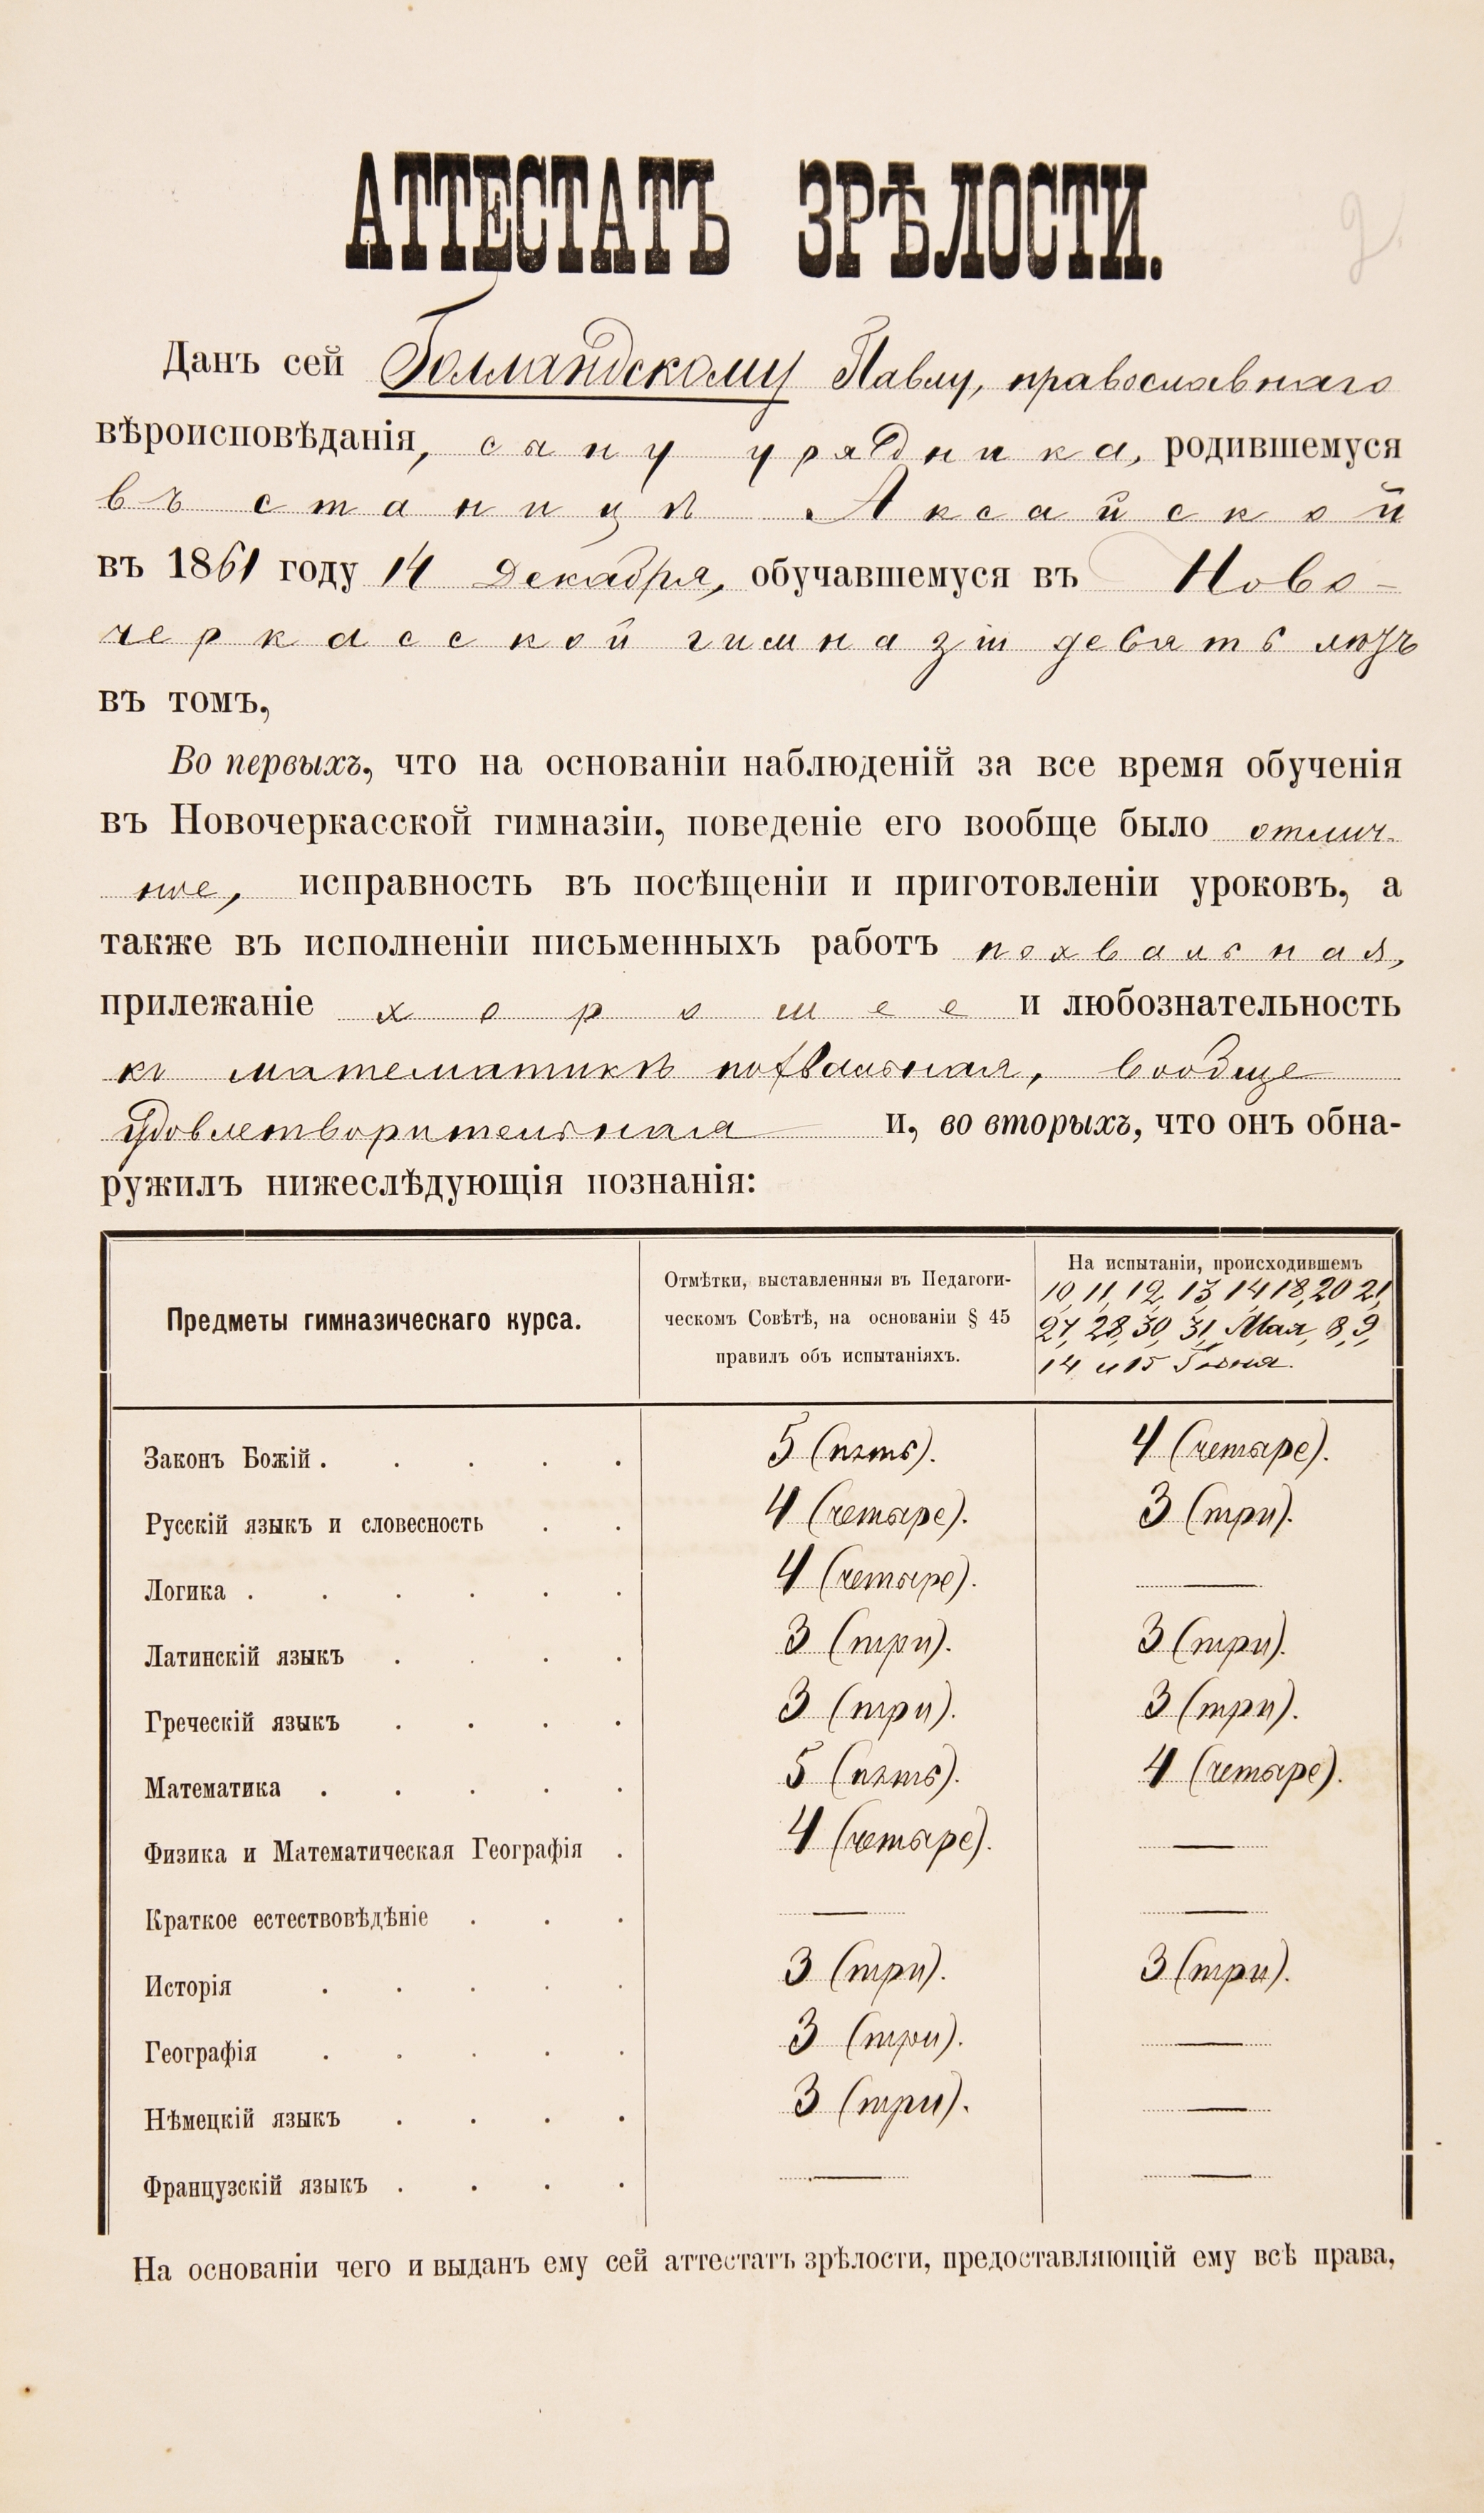 АТТЕСТАТЪ ЗРѢЛОСТИ.
2
Данъ сей Голландскому Павлу, православнаго
вѣроисповѣданія, сыну урядника, родившемуся
въ станицѣ Аксайской
въ 1861 году 14 Декабря, обучавшемуся въ Ново-
черкасской гимназіи девять лѣтъ
въ томъ,
Во первыхъ, что на основаніи наблюденій за все время обученія
въ Новочеркасской гимназіи, поведеніе его вообще было отлич-
ное, исправность въ посѣщеніи и приготовленіи уроковъ, а
также въ исполненіи письменныхъ работъ похвальная,
прилежаніе хорошее и любознательность
къ математикѣ похвальная, вообще
удовлетворительная и, во вторыхъ, что онъ обна-
ружилъ нижеслѣдующія познанія:
Предметы гимназическаго курса.
Отмѣтки, выставленныя въ Педагоги-
ческомъ Совѣтѣ, на основаніи § 45
правилъ объ испытаніяхъ.
На испытаніи, происходившемъ
10, 11, 12, 13, 14, 18, 20, 21,
27, 28, 30, 31, Мая, 8, 9,
14 и 15 Іюня.
Законъ Божій. . . . . 5 (пять). 4 (четыре).
Русскій языкъ и словесность . . 4 (четыре). 3 (три).
Логика . . . . . . 4 (четыре). —
Латинскій языкъ . . . . 3 (три). 3 (три).
Греческій языкъ . . . . 3 (три). 3 (три).
Математика . . . . . 5 (пять). 4 (четыре).
Физика и Математическая Географія . 4 (четыре). —
Краткое естествовѣдѣніе . . . — —
Исторія . . . . . 3 (три). 3 (три).
Географія . . . . . 3 (три). —
Нѣмецкій языкъ . . . . 3 (три). —
Французскій языкъ . . . . — —
На основаніи чего и выданъ ему сей аттестатъ зрѣлости, предоставляющій ему всѣ права,